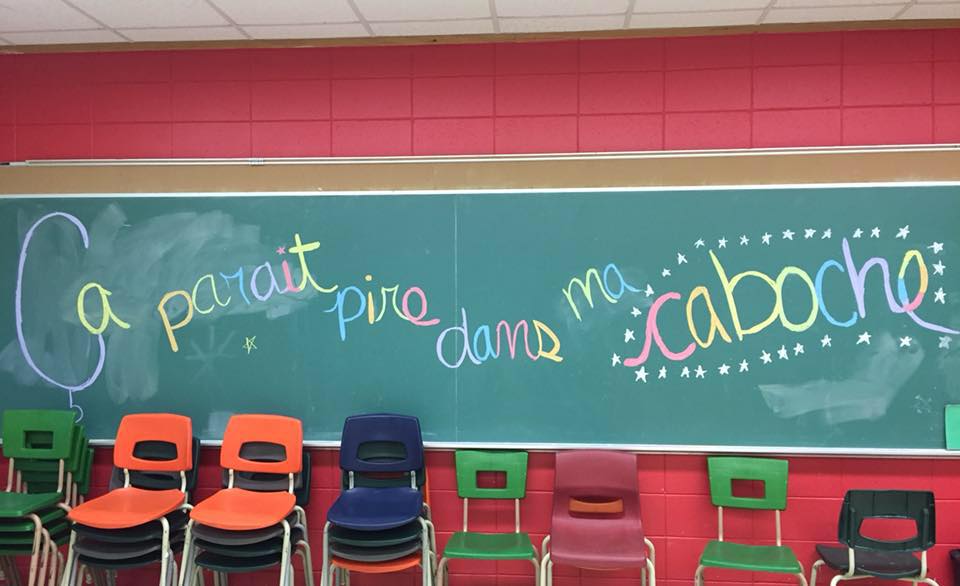 Ça parait pire dans ma caboche